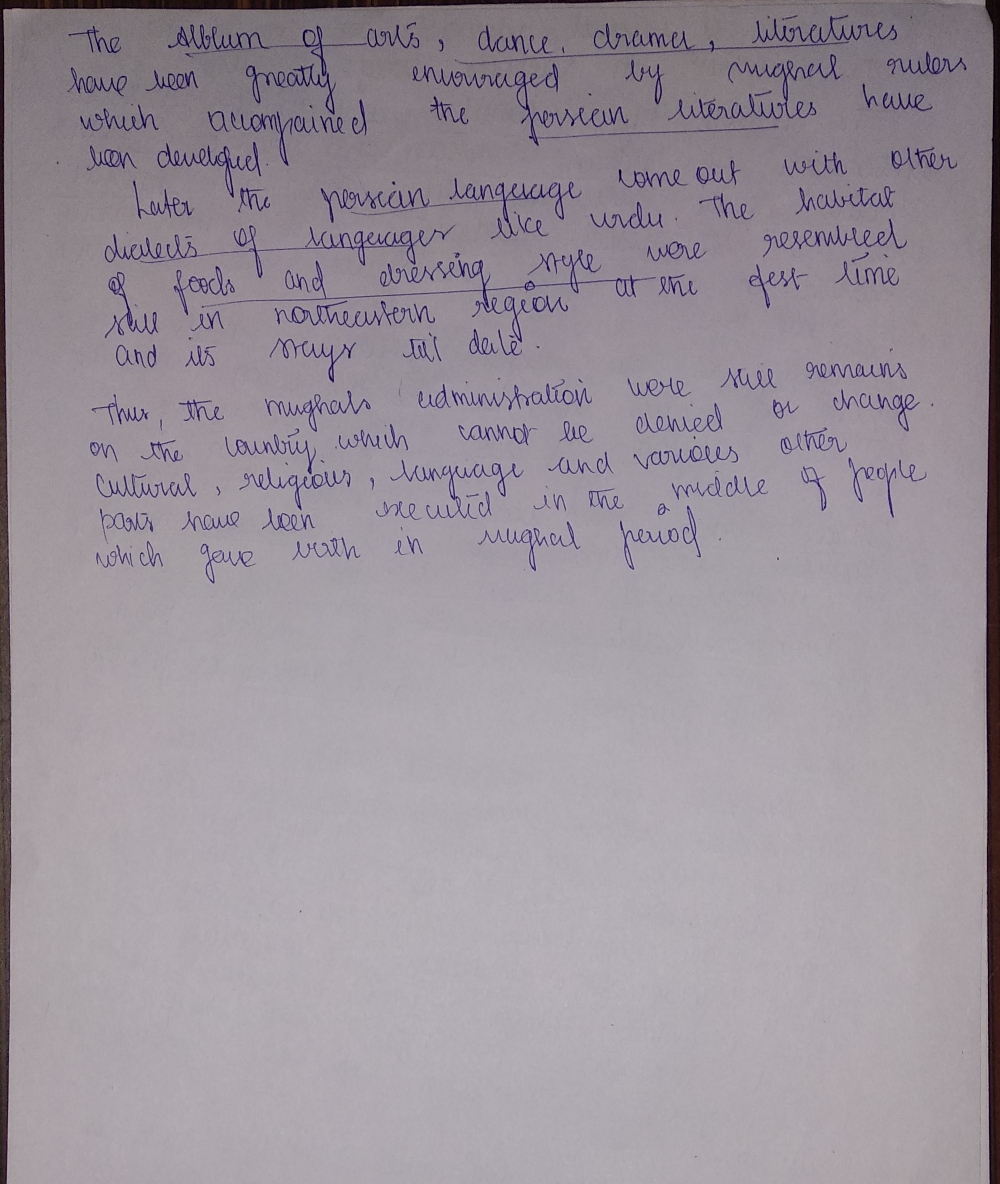 The Album of arts, dance, drama, literatures
have been greatly encouraged by mughal rulers
which accompained the persian literatures have
been developed.
Later the persian language come out with other
dialects of languages like urdu. The habitat
of foods and dressing style were resembled
still in northeastern region at the time
and its stays till date.
Thus, the mughals administration were still remains
on the country which cannot be denied or change.
Cultural, religious, language and various other
parts have been executed in the middle of people
which gave birth in mughal period.